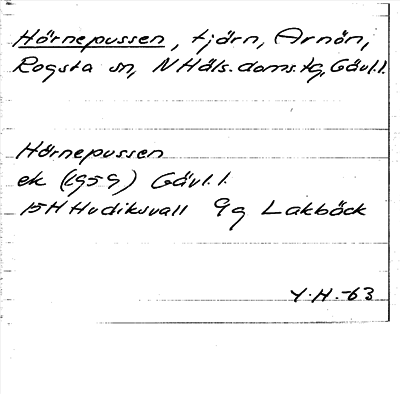 Hörnepussen, tjärn, Arnön,
Rogsta sn, N Häls. doms. tg, Gävl. l.
Hörnepussen
ek (1959) Gävl. l.
15H Hudiksvall 9g Lakbäck
Y. H. -63